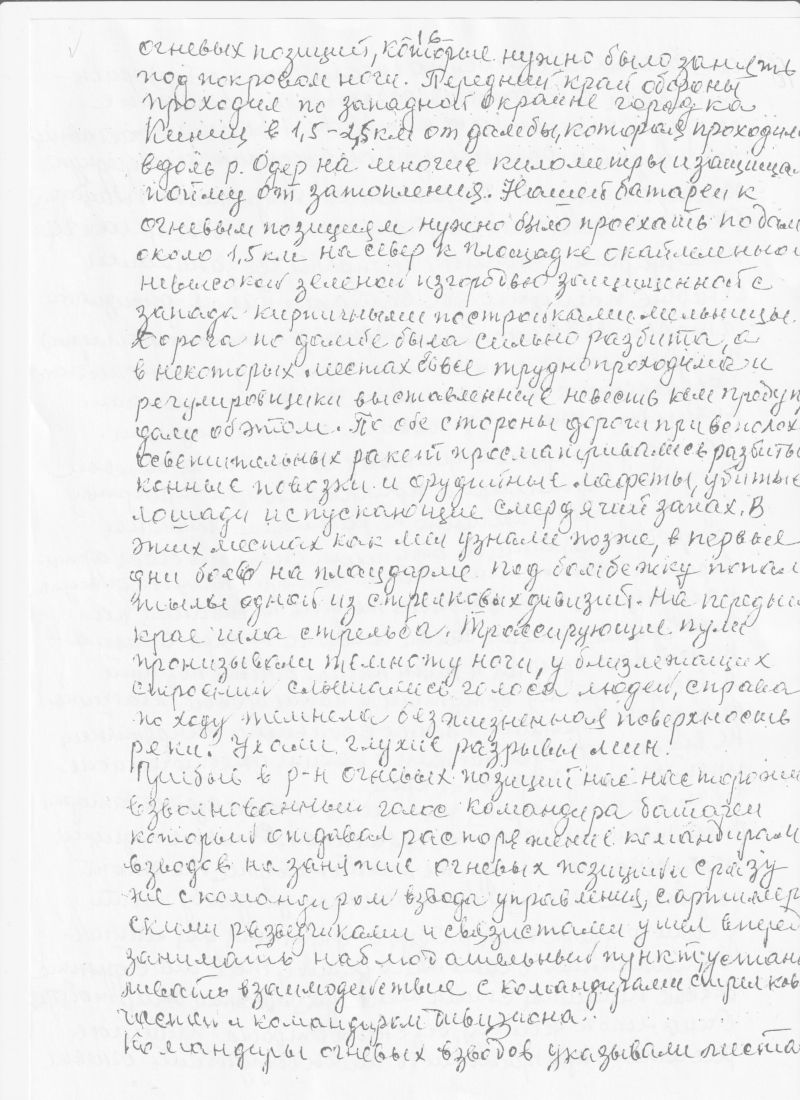 16
огневых позиций, которые нужно было занять
под покровом ночи. Передний край обороны
проходил по западной окраине городка
Кинец в 1,5-2,5 км от дамбы, которая проходила
вдоль р. Одер на многие километры и защищал
пойму от затопления. Нашей батареи к
огневым позициям нужно было проехать по дам
около 1,5 км на север к площадке окаймленной
невысокой зеленой изгородью защищенной с
запада кирпичными постройками мельницы.
Дорога по дамбе была сильно разбита, а
в некоторых местах вовсе труднопроходима и
регулировщики выставленные невесть кем предуп
дали об этом. По обе стороны дороги при всполох
осветительных ракет просматривались разбиты
конные повозки и орудийные лафеты, убитые
лошади испускающие смердячий запах. В
этих местах как мы узнали позже, в первые
дни боев на плацдарме под бомбежку попал
тылы одной из стрелковых дивизий. На передн
крае шла стрельба. Трассирующие пули
пронизывали темноту ночи, у близлежащих
строений слышались голоса людей, справа
по ходу темнела безжизненная поверхность
реки. Ухали глухие разрывы мин.
Прибыв в р-н огневых позиций нас насторожил
взволнованный голос командира батареи
который отдавал распоряжение командирам
взводов на занятие огневых позиций и сразу
же с командиром взвода управления, с артиллер
скими разведчиками и связистами ушел вперед
занимать наблюдательный пункт, устана
ливать взаимодействие с командирами стрелков
части и командиром дивизиона.
Командиры огневых взводов указывали места